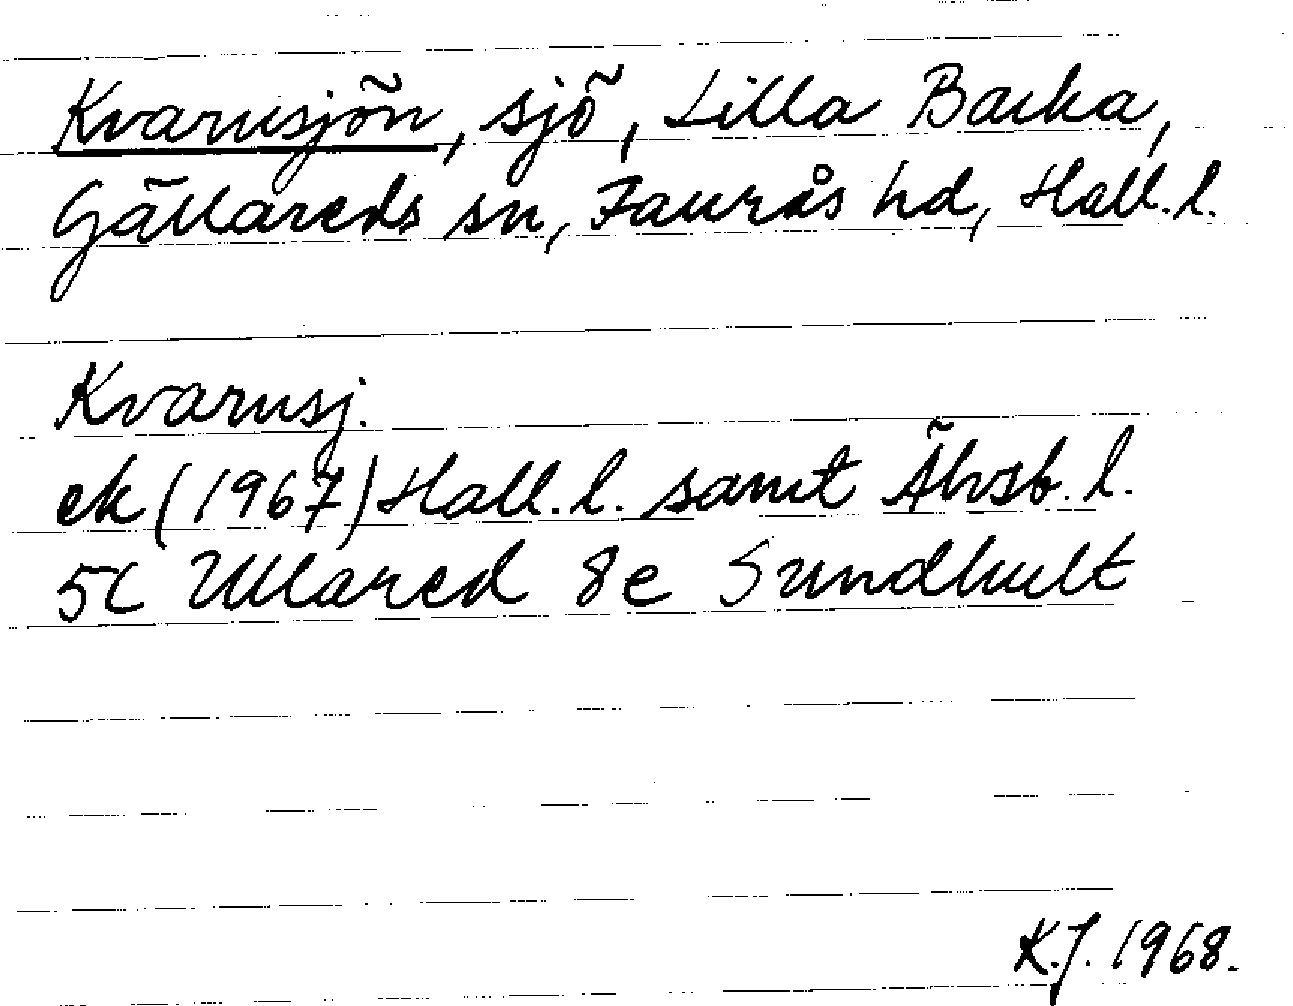 Kvarnsjön, sjö, Lilla Backa,
Gällareds sn, Faurås hd, Hall. l.
Kvarnsj.
ek (1967) Hall. l. samt Älvsb. l.
5C Ullared 8e Sundhult
K.J. 1968.